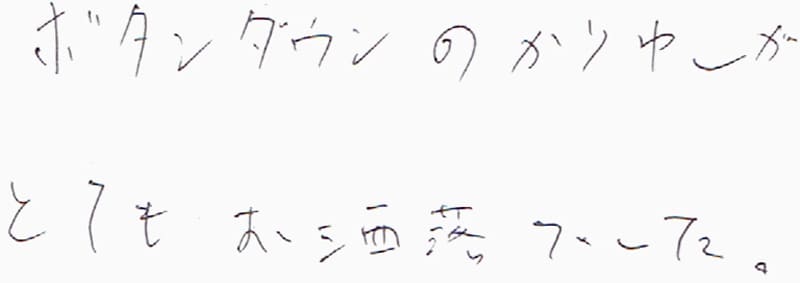 ボタンダウンのかりゆしが
とてもお洒落でした。